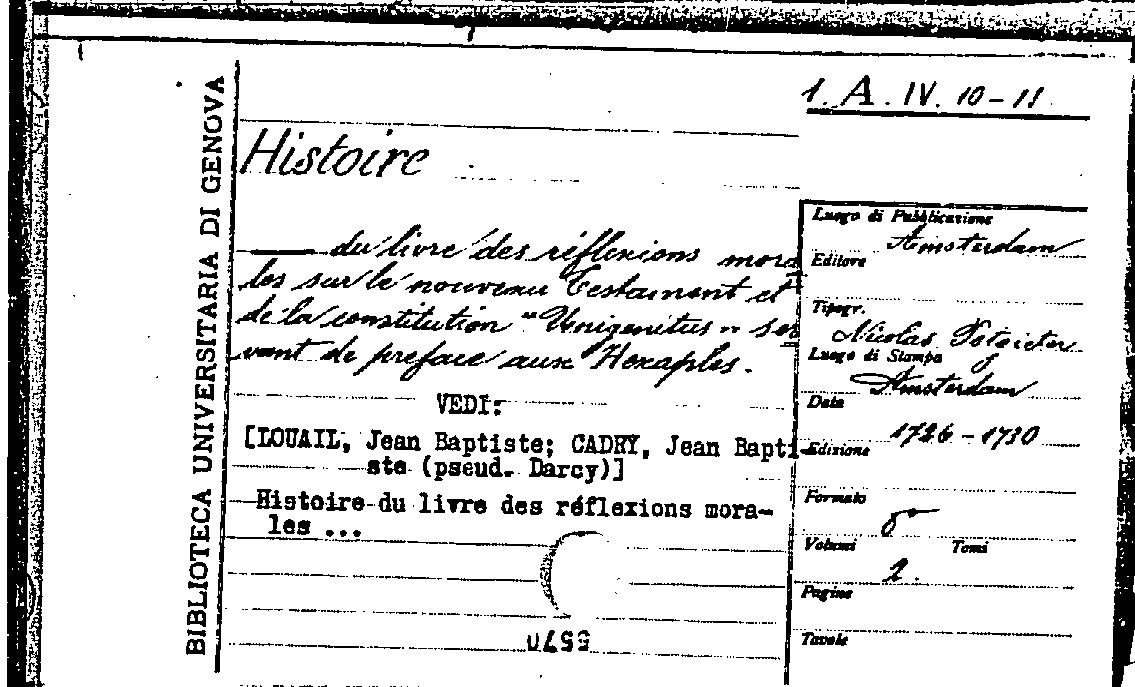 1. A. IV. 10-11
BIBLIOTECA UNIVERSITARIA DI GENOVA
Histoire
du livre des réflexions mora
les sur le nouveau Testament et
de la constitution "Unigenitus" ser
vant de preface aux Hexaples.
VEDI:
[LOUAIL, Jean Baptiste; CADRY, Jean Bapti-
ste (pseud. Darcy)]
Histoire du livre des réflexions mora-
les ...
Luogo di Pubblicazione
Amsterdam
Editore
Tipogr.
Nicolas
Luogo di Stampa
Amsterdam
Data
1726-1730
Edizione
Formato
8°
Volumi Tomi
2.
Pagine
Tavole